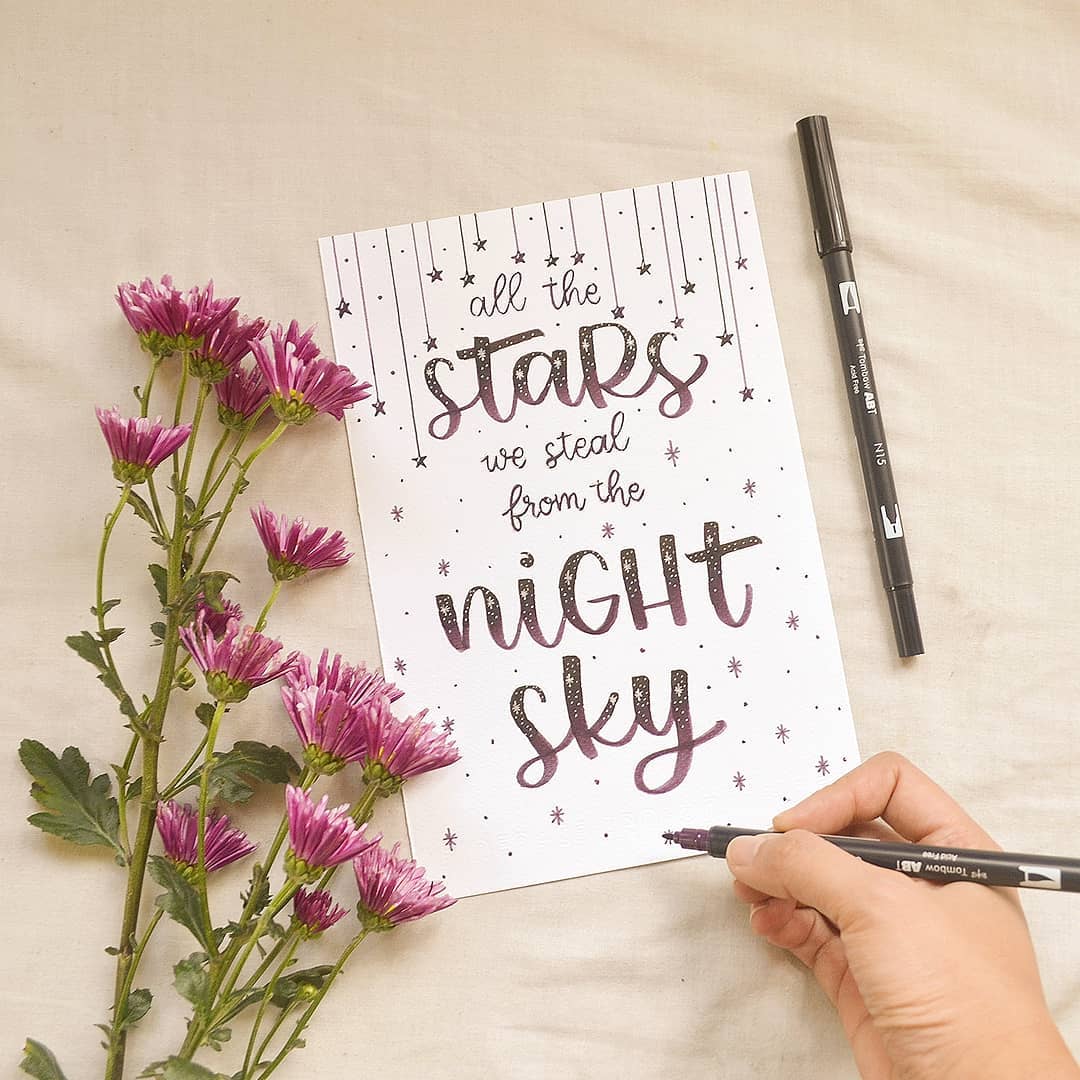 all the
staRs
we steal
from the
niGHt
sky
Tombow ABT
Acid Free
N15
Tombow ABT
Acid Free